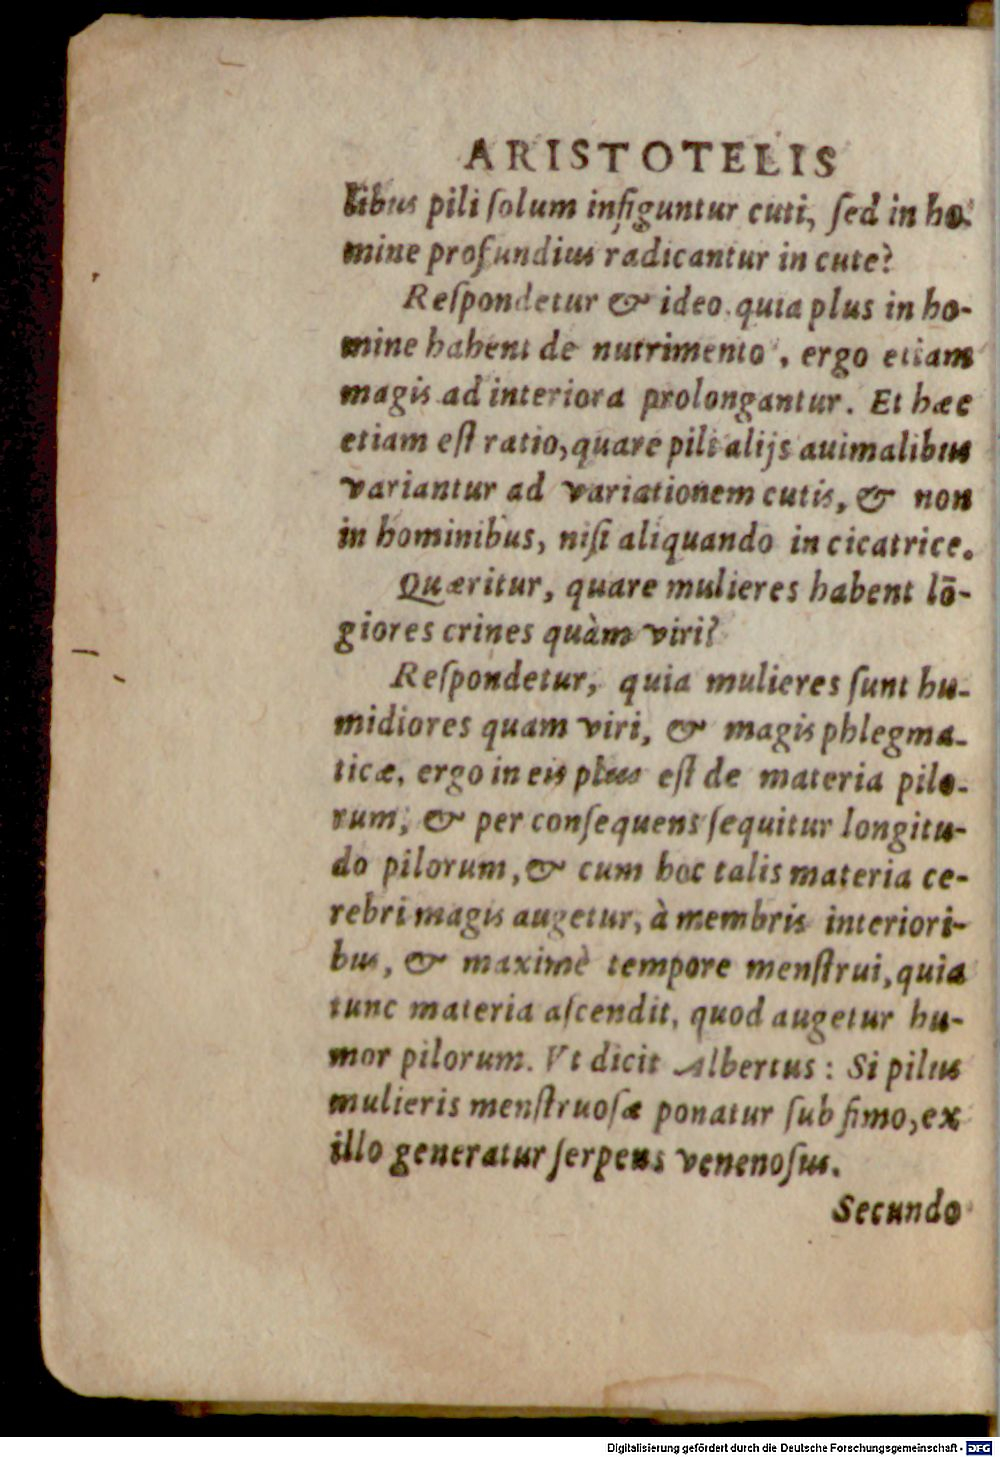 ARISTOTELIS
libus pili ſolum infiguntur cuti, ſed in ho-
mine profundius radicantur in cute?
Reſpondetur & ideo quia plus in ho-
mine habent de nutrimento, ergo etiam
magis ad interiora prolongantur. Et hæc
etiam eſt ratio, quare pili alijs auimalibus
variantur ad variationem cutis, & non
in hominibus, niſi aliquando in cicatrice.
Quæritur, quare mulieres habent lō-
giores crines quàm viri?
Reſpondetur, quia mulieres ſunt hu-
midiores quam viri, & magis phlegma-
ticæ, ergo in eis plus eſt de materia pilo-
rum, & per conſequens ſequitur longitu-
do pilorum, & cum hoc talis materia ce-
rebri magis augetur, à membris interiori-
bus, & maximè tempore menſtrui, quia
tunc materia aſcendit, quod augetur hu-
mor pilorum. Vt dicit Albertus: Si pilus
mulieris menſtruoſæ ponatur ſub fimo, ex
illo generatur ſerpens venenoſus.
Secundo
Digitalisierung gefördert durch die Deutsche Forschungsgemeinschaft - DFG